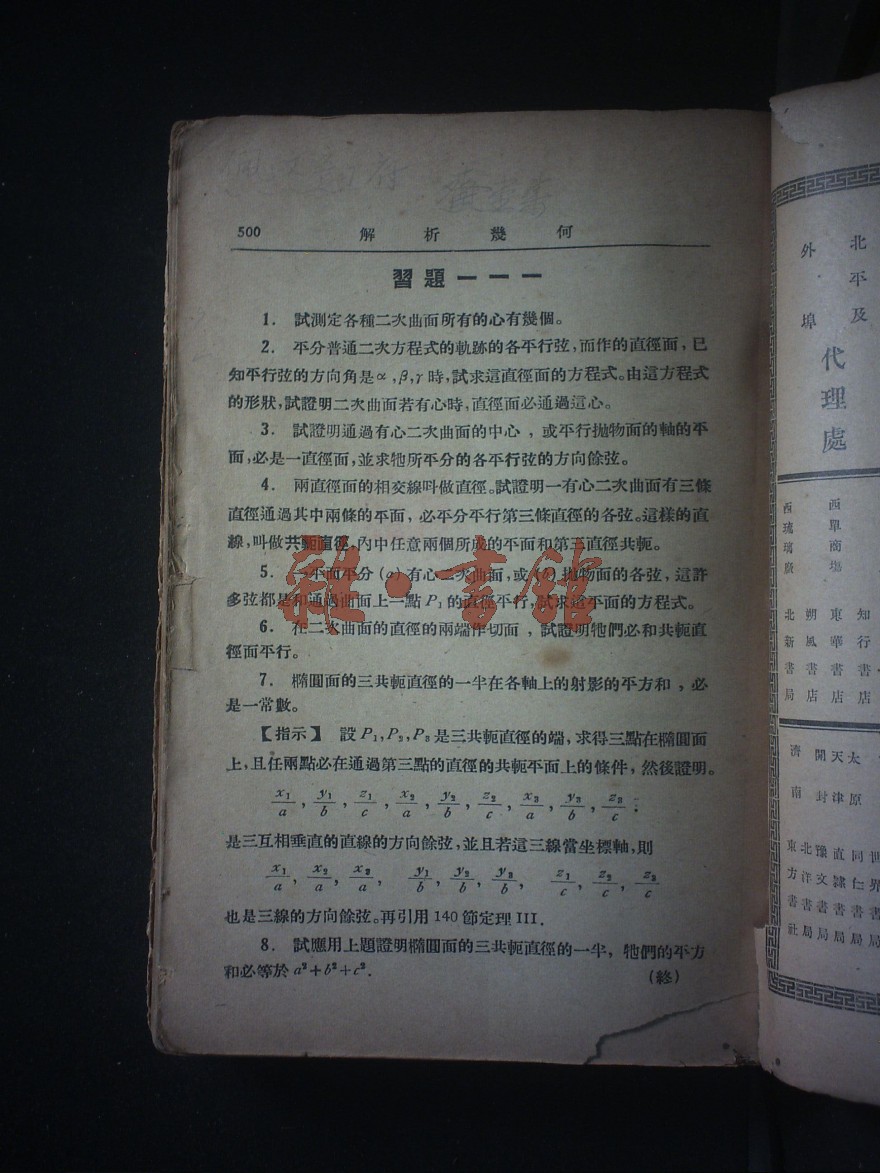 500 解析幾何
習題一一一
1. 試測定各種二次曲面所有的心有幾個。
2. 平分普通二次方程式的軌跡的各平行弦，而作的直徑面，已
知平行弦的方向角是α，β，γ時，試求這直徑面的方程式。由這方程式
的形狀，試證明二次曲面若有心時，直徑面必通過這心。
3. 試證明通過有心二次曲面的中心，或平行拋物面的軸的平
面，必是一直徑面，並求牠所平分的各平行弦的方向餘弦。
4. 兩直徑面的相交線叫做直徑。試證明一有心二次曲面有三條
直徑通過其中兩條的平面，必平分平行第三條直徑的各弦。這樣的直
線，叫做共軛直徑，內中任意兩個所成的平面和第三直徑共軛。
5. 一平面平分(a)有心二次曲面，或(b)拋物面的各弦，這許
多弦都是和通過曲面上一點P₁的直徑平行，試求這平面的方程式。
6. 在二次曲面的直徑的兩端作切面，試證明牠們必和共軛直
徑面平行。
7. 橢圓面的三共軛直徑的一半在各軸上的射影的平方和，必
是一常數。
【指示】 設P₁，P₂，P₃是三共軛直徑的端，求得三點在橢圓面
上，且任兩點必在通過第三點的直徑的共軛平面上的條件，然後證明。
x₁/a，y₁/b，z₁/c，x₂/a，y₂/b，z₂/c，x₃/a，y₃/b，z₃/c；
是三互相垂直的直線的方向餘弦，並且若這三線當坐標軸，則
x₁/a，x₂/a，x₃/a，y₁/b，y₂/b，y₃/b，z₁/c，z₂/c，z₃/c
也是三線的方向餘弦。再引用140節定理III.
8. 試應用上題證明橢圓面的三共軛直徑的一半，牠們的平方
和必等於a²+b²+c².
(終)
雜·書館
北平及
外·埠
代理處
西單商場
西琉璃廠
知行書店
東華書店
朔風書店
北新書局
太原
天津
開封
濟南
同仁書局
直隸書局
豫文書局
北洋書局
東方書社